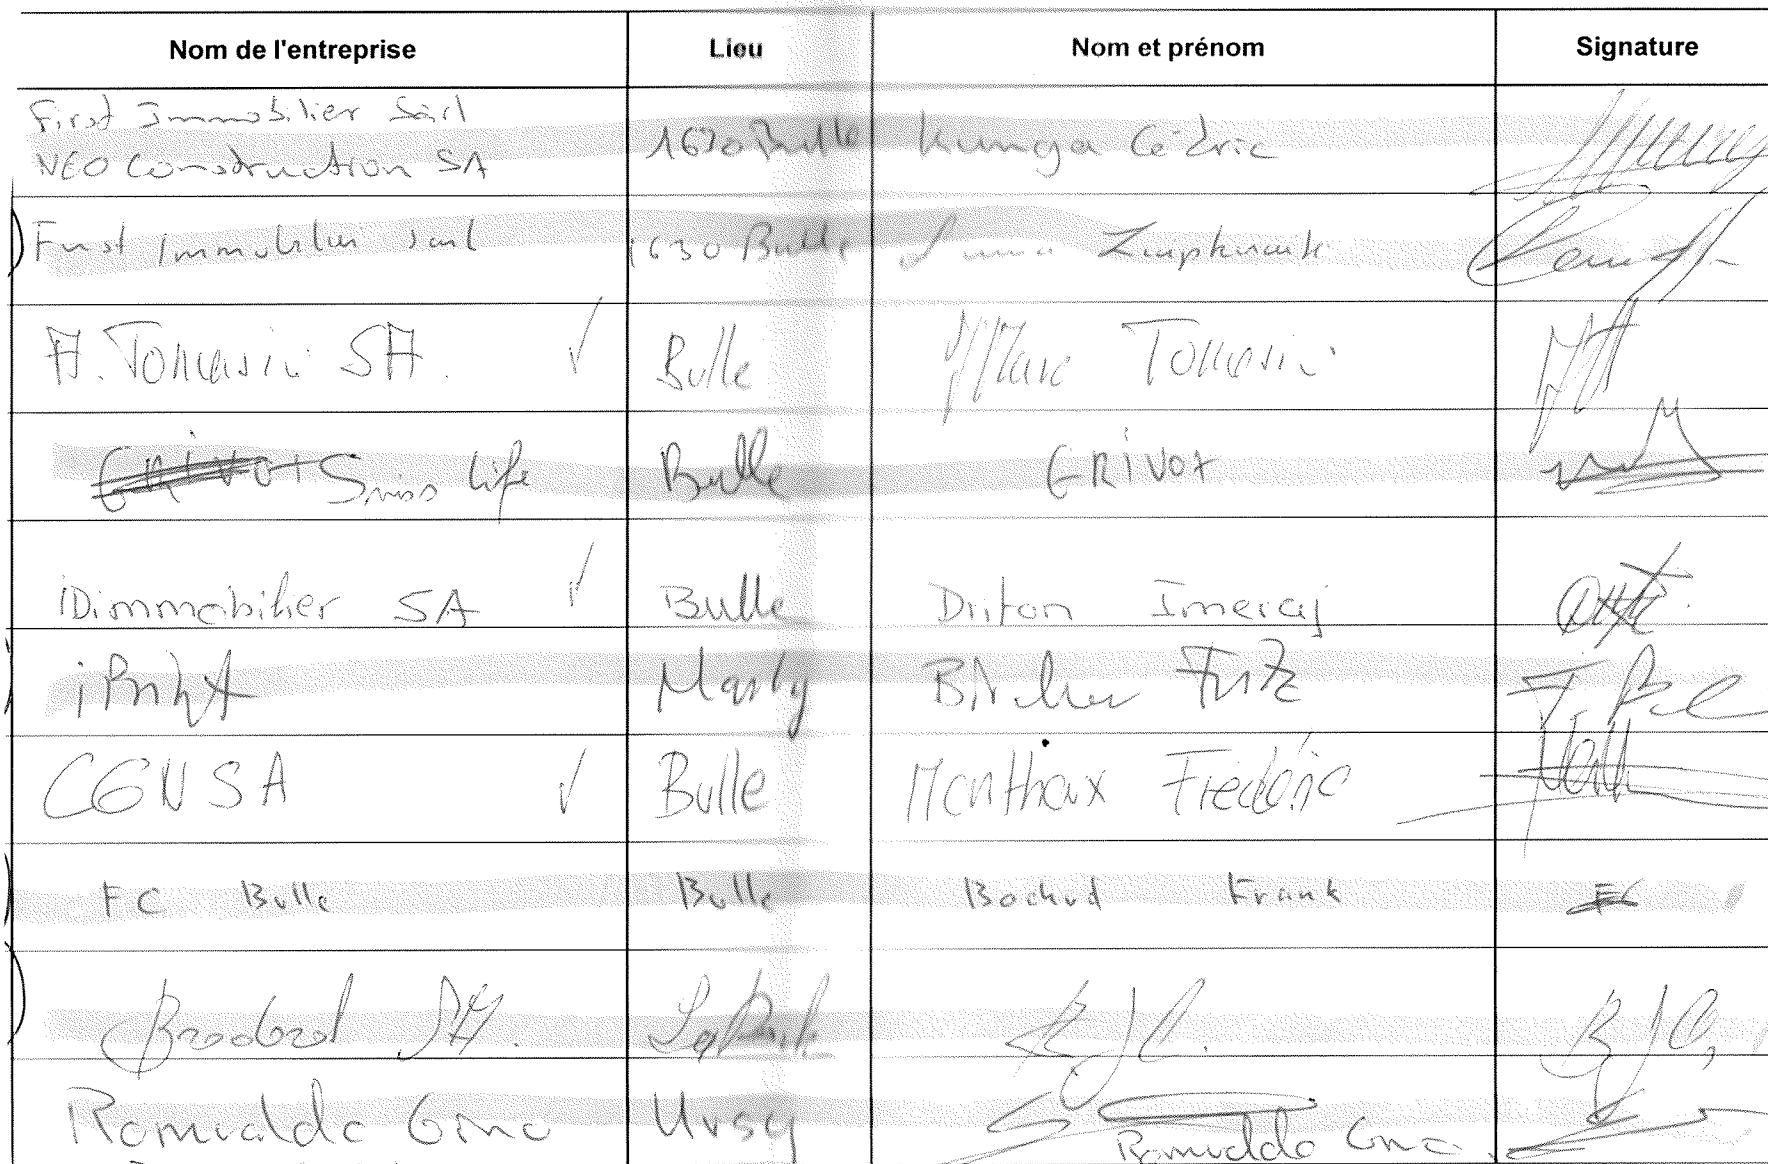 Nom de l'entreprise Lieu Nom et prénom Signature
First Immobilier Sàrl
NEO Construction SA 1630 Bulle Kunga Cédric
First Immobilier sarl 1630 Bulle
A. Tomasini SA. ✓ Bulle Marc Tomasini
Swiss Life Bulle GRIVOT
iDimmobilier SA ✓ Bulle Driton Imeraj
iPrint Marly Fritz
CGN SA ✓ Bulle Monthoux Frédéric
FC Bulle Bulle Bochud Frank
SA.
Romualdo Gino Ursy Romualdo Gino